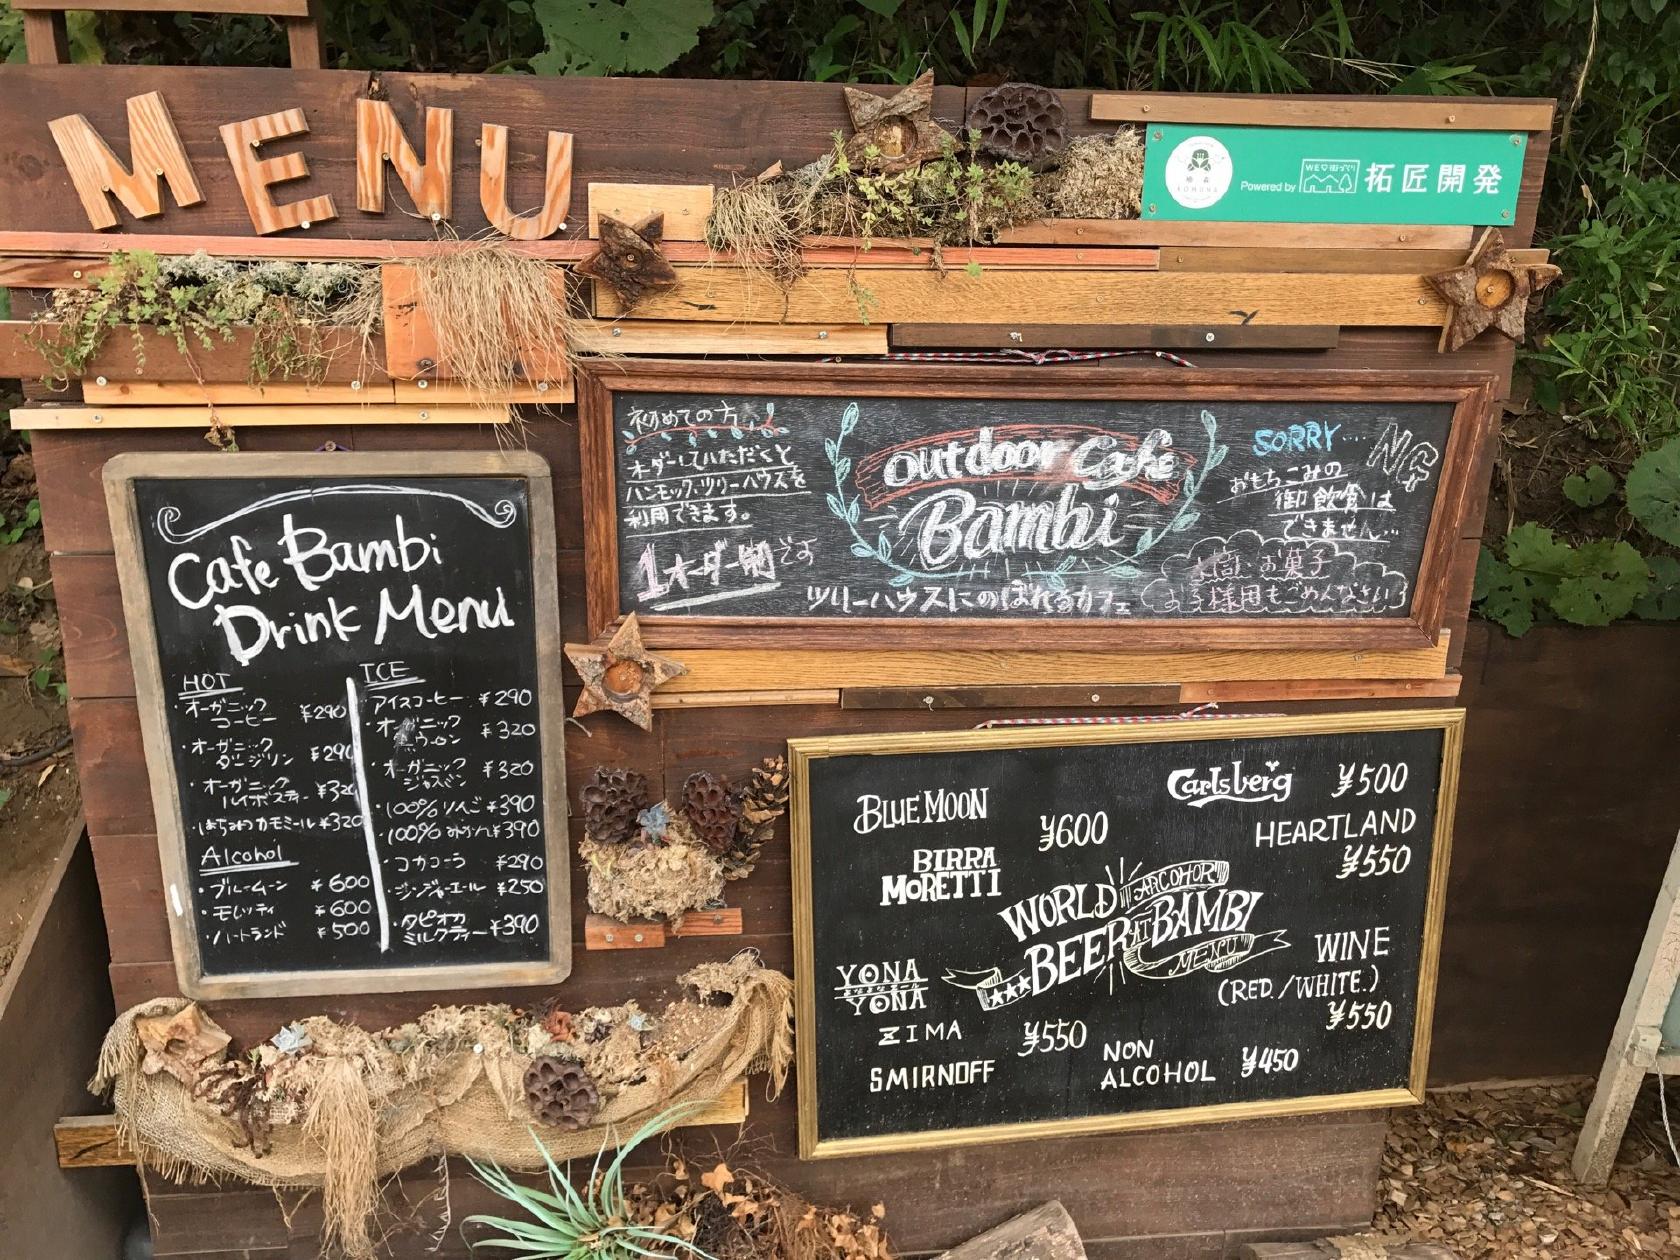 MENU
KOMUNA
Powered by
WE♡街づくり
拓匠開発
初めての方
オーダーしていただくと
ハンモック、ツリーハウスを
利用できます。
1オーダー制です
outdoor Cafe
Bambi
ツリーハウスにのぼれるカフェ
SORRY.... NG
おもちこみの
御飲食は
できません...
水筒・お菓子
お子様用もごめんなさい
Cafe Bambi
Drink Menu
HOT
・オーガニック
コーヒー ¥290
・オーガニック
ダージリン ¥290
・オーガニック
ルイボスティー ¥320
・はちみつカモミール ¥320
Alcohol
・ブルームーン ¥600
・モレッティ ¥600
・ハートランド ¥500
ICE
アイスコーヒー ¥290
・オーガニック
黒ウーロン ¥320
・オーガニック
ジャスミン ¥320
・100%りんご ¥390
・100%みかん ¥390
・コカコーラ ¥290
・ジンジャーエール ¥250
・タピオカ
ミルクティー ¥390
BLUE MOON
¥600
BIRRA
MORETTI
Carlsberg ¥500
HEARTLAND
¥550
WORLD ARCOHOR
BEER AT BAMBI
MENU
YONA
よなよなエール
YONA
ZIMA
¥550
SMIRNOFF
WINE
(RED./WHITE.)
¥550
NON
ALCOHOL ¥450